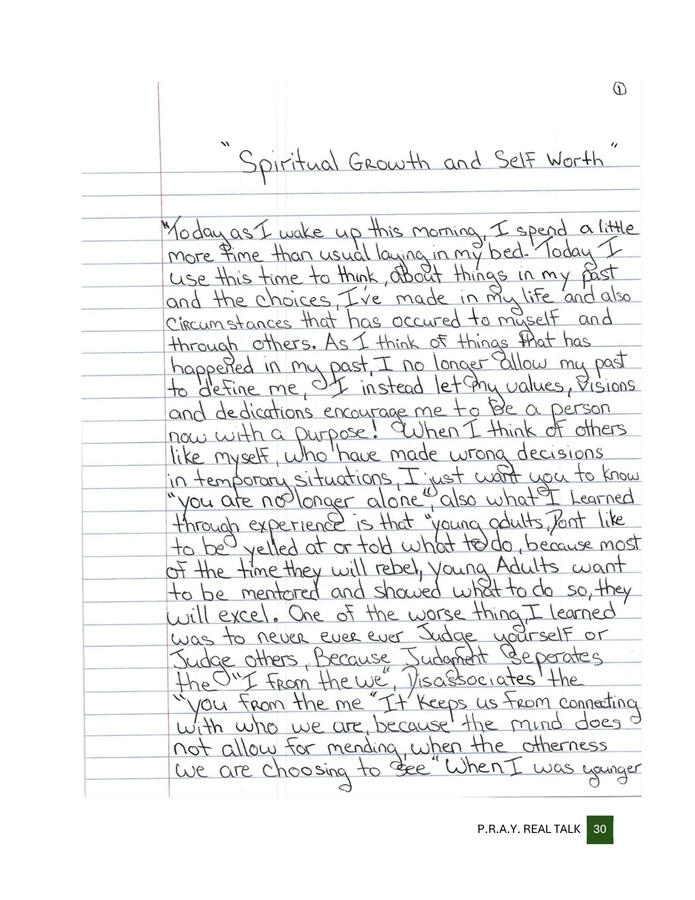 ①
"Spiritual Growth and Self Worth"
"Today as I wake up this morning, I spend a little
more time than usual laying in my bed. Today I
use this time to think, about things in my past
and the choices, I've made in my life and also
circumstances that has occured to myself and
through others. As I think of things that has
happened in my past, I no longer allow my past
to define me, I instead let my values, visions
and dedications encourage me to be a person
now with a purpose! When I think of others
like myself, who have made wrong decisions
in temporary situations, I just want you to know
"you are no longer alone", also what I learned
through experience is that "young adults, Dont like
to be yelled at or told what to do, because most
of the time they will rebel, Young Adults want
to be mentored and showed what to do so, they
will excel. One of the worse thing, I learned
was to never ever ever Judge yourself or
Judge others, Because Judgment Seperates
the "I from the we", Disassociates the
"you from the me" It Keeps us from connecting
with who we are, because the mind does
not allow for mending, when the otherness
we are choosing to see" When I was younger
P.R.A.Y. REAL TALK 30